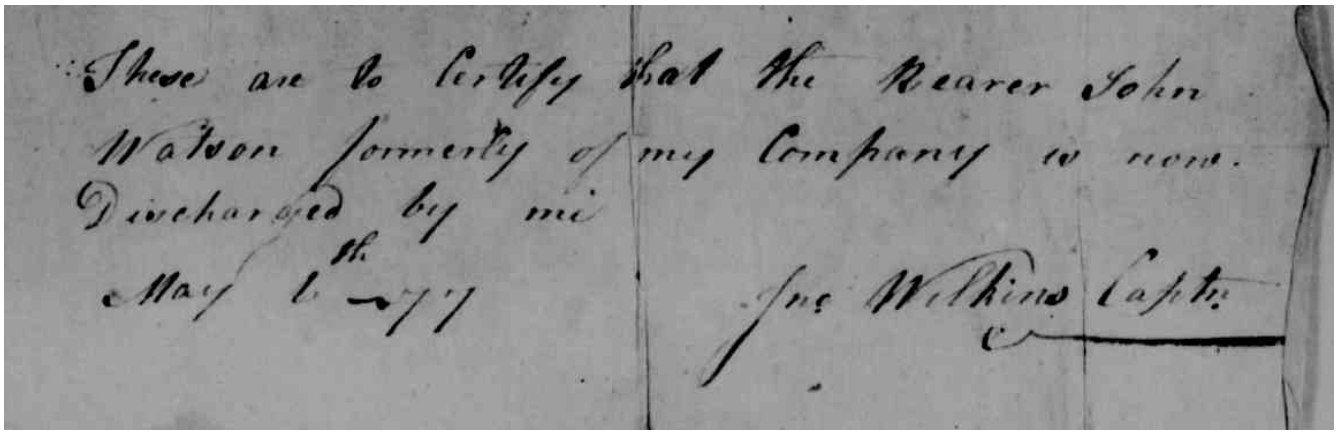 These are to Certify that the Bearer John
Watson formerly of my Company is now.
Discharged by me
May 6th 77
Jno Wilkins Captn.